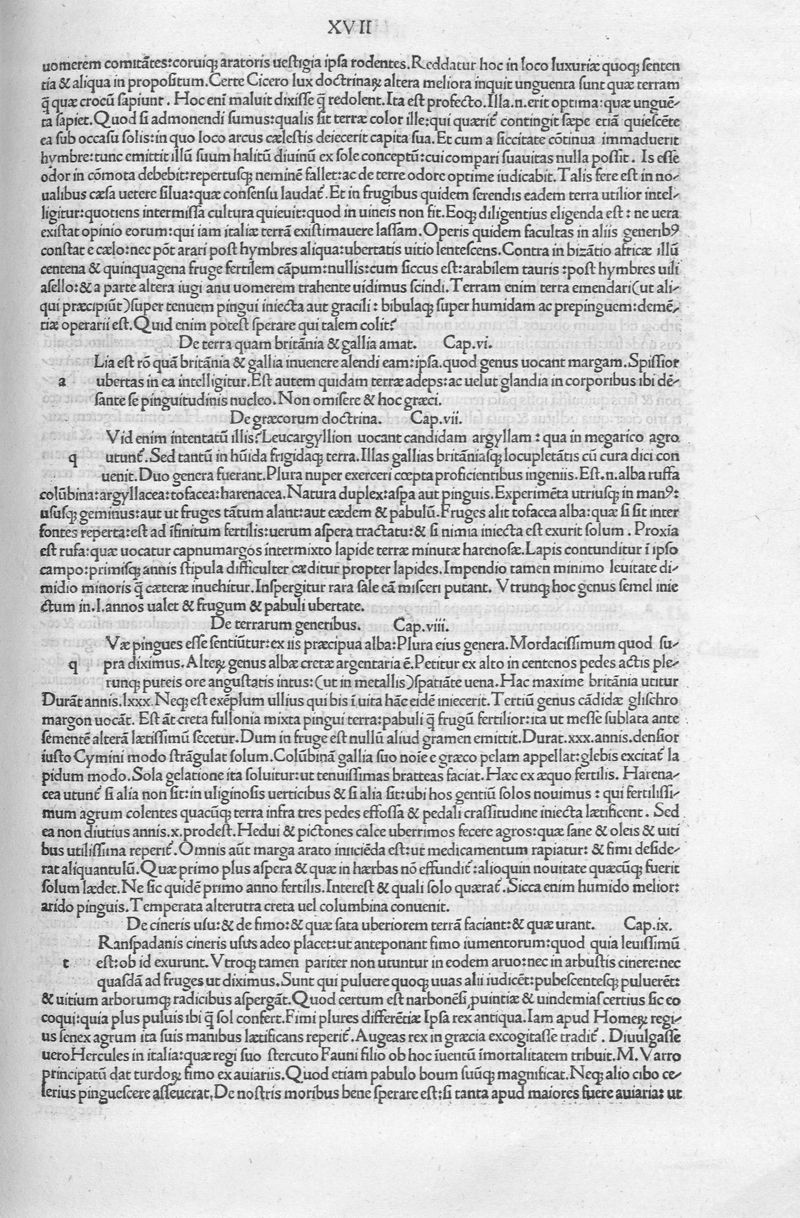 XVII
uomerem comitātes:coruiq; aratoris uestigia ipsa rodentes.Reddatur hoc in loco luxuriæ quoq; senten
tia & aliqua in propositum.Certe Cicero lux doctrinaꝝ altera meliora inquit unguenta sunt quæ terram
q̄ quæ crocū sapiunt. Hoc enī maluit dixisse q̄ redolent.Ita est profecto.Illa.n.erit optima:quæ unguē-
ta sapiet.Quod si admonendi sumus:qualis sit terræ color ille:qui quærit̃ contingit sæpe etiā quiescēte
ea sub occasu solis:in quo loco arcus cælestis deiecerit capita sua.Et cum a siccitate cōtinua immaduerit
hymbre:tunc emittit illū suum halitū diuinū ex sole conceptū:cui compari suauitas nulla possit. Is esse
odor in cōmota debebit:repertusq; neminē fallet:ac de terre odore optime iudicabit.Talis fere est in no-
ualibus cæsa uetere silua:quæ consensu laudat̃.Et in frugibus quidem serendis eadem terra utilior intel-
ligitur:quotiens intermissa cultura quieuit:quod in uineis non fit.Eoq; diligentius eligenda est: ne uera
existat opinio eorum:qui iam italiæ terrā existimauere lassam.Operis quidem facultas in aliis generibꝰ
constat e cælo:nec pōt arari post hymbres aliqua:ubertatis uitio lentescens.Contra in bizātio africæ illū
centena & quinquagena fruge fertilem cāpum:nullis:cum siccus est:arabilem tauris :post hymbres uili
asello:& a parte altera iugi anu uomerem trahente uidimus scindi.Terram enim terra emendari(ut ali-
qui præcipiūt)super tenuem pingui iniecta aut gracili: bibulaq; super humidam ac prepinguem:demē-
tiæ operarii est.Quid enim potest sperare qui talem colit?
De terra quam britānia & gallia amat. Cap.vi.
Lia est rō quā britānia & gallia inuenere alendi eam:ipsa.quod genus uocant margam.Spissior
a ubertas in ea intelligitur.Est autem quidam terræ adeps:ac uelut glandia in corporibus ibi dē-
sante se pinguitudinis nucleo.Non omisere & hoc græci.
De græcorum doctrina. Cap.vii.
Vid enim intentatū illis?Leucargyllion uocant candidam argyllam: qua in megarico agro
q utunt̃.Sed tantū in hūida frigidaq; terra.Illas gallias britāniasq; locupletātis cū cura dici con
uenit.Duo genera fuerant.Plura nuper exerceri cœpta proficientibus ingeniis.Est.n.alba ruffa
colūbina:argyllacea:tofacea:harenacea.Natura duplex:aspa aut pinguis.Experimēta utriusq; in manꝰ:
ususq; geminus:aut ut fruges tātum alant:aut eædem & pabulū.Fruges alit tofacea alba:quæ si sit inter
fontes reperta:est ad īfinitum fertilis:uerum aspera tractatu:& si nimia iniecta est exurit solum. Proxia
est rufa:quæ uocatur capnumargos intermixto lapide terræ minutæ harenosæ.Lapis contunditur ī ipso
campo:primisq; annis stipula difficulter cæditur propter lapides.Impendio tamen minimo leuitate di-
midio minoris q̄ cæteræ inuehitur.Inspergitur rara sale eā misceri putant. Vtrunq; hoc genus semel inie
ctum in.l.annos ualet & frugum & pabuli ubertate.
De terrarum generibus. Cap.viii.
Væ pingues esse sentiūtur:ex iis præcipua alba:Plura eius genera.Mordacissimum quod su-
q pra diximus.Alteꝝ genus albæ cretæ argentaria ē.Petitur ex alto in centenos pedes actis ple-
runq; puteis ore angustatis intus:(ut in metallis)spatiāte uena.Hac maxime britānia utitur
Durāt annis.lxxx.Neq; est exēplum ullius qui bis ī uita hāc eidē iniecerit.Tertiū genus cādidæ glischro
margon uocāt. Est āt creta fullonia mixta pingui terra:pabuli q̄ frugū fertilior:ita ut messe sublata ante
sementē alterā lætissimū secetur.Dum in fruge est nullū aliud gramen emittit.Durat.xxx.annis.densior
iusto Cymini modo strāgulat solum.Colūbinā gallia suo noie e græco pelam appellat:glebis excitat̃ la
pidum modo.Sola gelatione ita soluitur:ut tenuissimas bratteas faciat.Hæc ex æquo fertilis. Harena-
cea utunt̃ si alia non sit:in uliginosis uerticibus & si alia sit:ubi hos gentiū solos nouimus : qui fertilissi-
mum agrum colentes quacūq; terra infra tres pedes effossa & pedali crassitudine iniecta lætificent. Sed
ea non diutius annis.x.prodest.Hedui & pictones calce uberrimos fecere agros:quæ sane & oleis & uiti
bus utilissima reperit̃.Omnis aūt marga arato iniiciēda est:ut medicamentum rapiatur: & fimi deside-
rat aliquantulū.Quæ primo plus aspera & quæ in hærbas nō effundit̃:alioquin nouitate quæcūq; fuerit
solum lædet.Ne sic quidē primo anno fertilis.Interest & quali solo quærat̃.Sicca enim humido melior:
arido pinguis.Temperata alterutra creta uel columbina conuenit.
De cineris usu:& de fimo:& quæ sata uberiorem terrā faciant:& quæ urant. Cap.ix.
Ranspadanis cineris usus adeo placet:ut anteponant fimo iumentorum:quod quia leuissimū
t est:ob id exurunt.Vtroq; tamen pariter non utuntur in eodem aruo:nec in arbustis cinere:nec
quasdā ad fruges ut diximus.Sunt qui puluere quoq; uuas alii iudicēt:pubescentesq; puluerēt:
& uitium arborumq; radicibus aspergāt.Quod certum est narbonēsi,puintiæ & uindemiascertius sic co
coqui:quia plus puluis ibi q̄ sol confert.Fimi plures differētiæ Ipsa rex antiqua.Iam apud Homeꝝ regi-
us senex agrum ita suis manibus lætificans reperit̃.Augeas rex in græcia excogitasse tradit̃. Diuulgasse
ueroHercules in italia:quæ regi suo stercuto Fauni filio ob hoc īuentū īmortalitatem tribuit.M.Varro
principatū dat turdoꝝ fimo ex auiariis.Quod etiam pabulo boum suūq; magnificat.Neq; alio cibo ce-
lerius pinguescere asseuerat.De nostris moribus bene sperare est:si tanta apud maiores fuere auiaria: ut